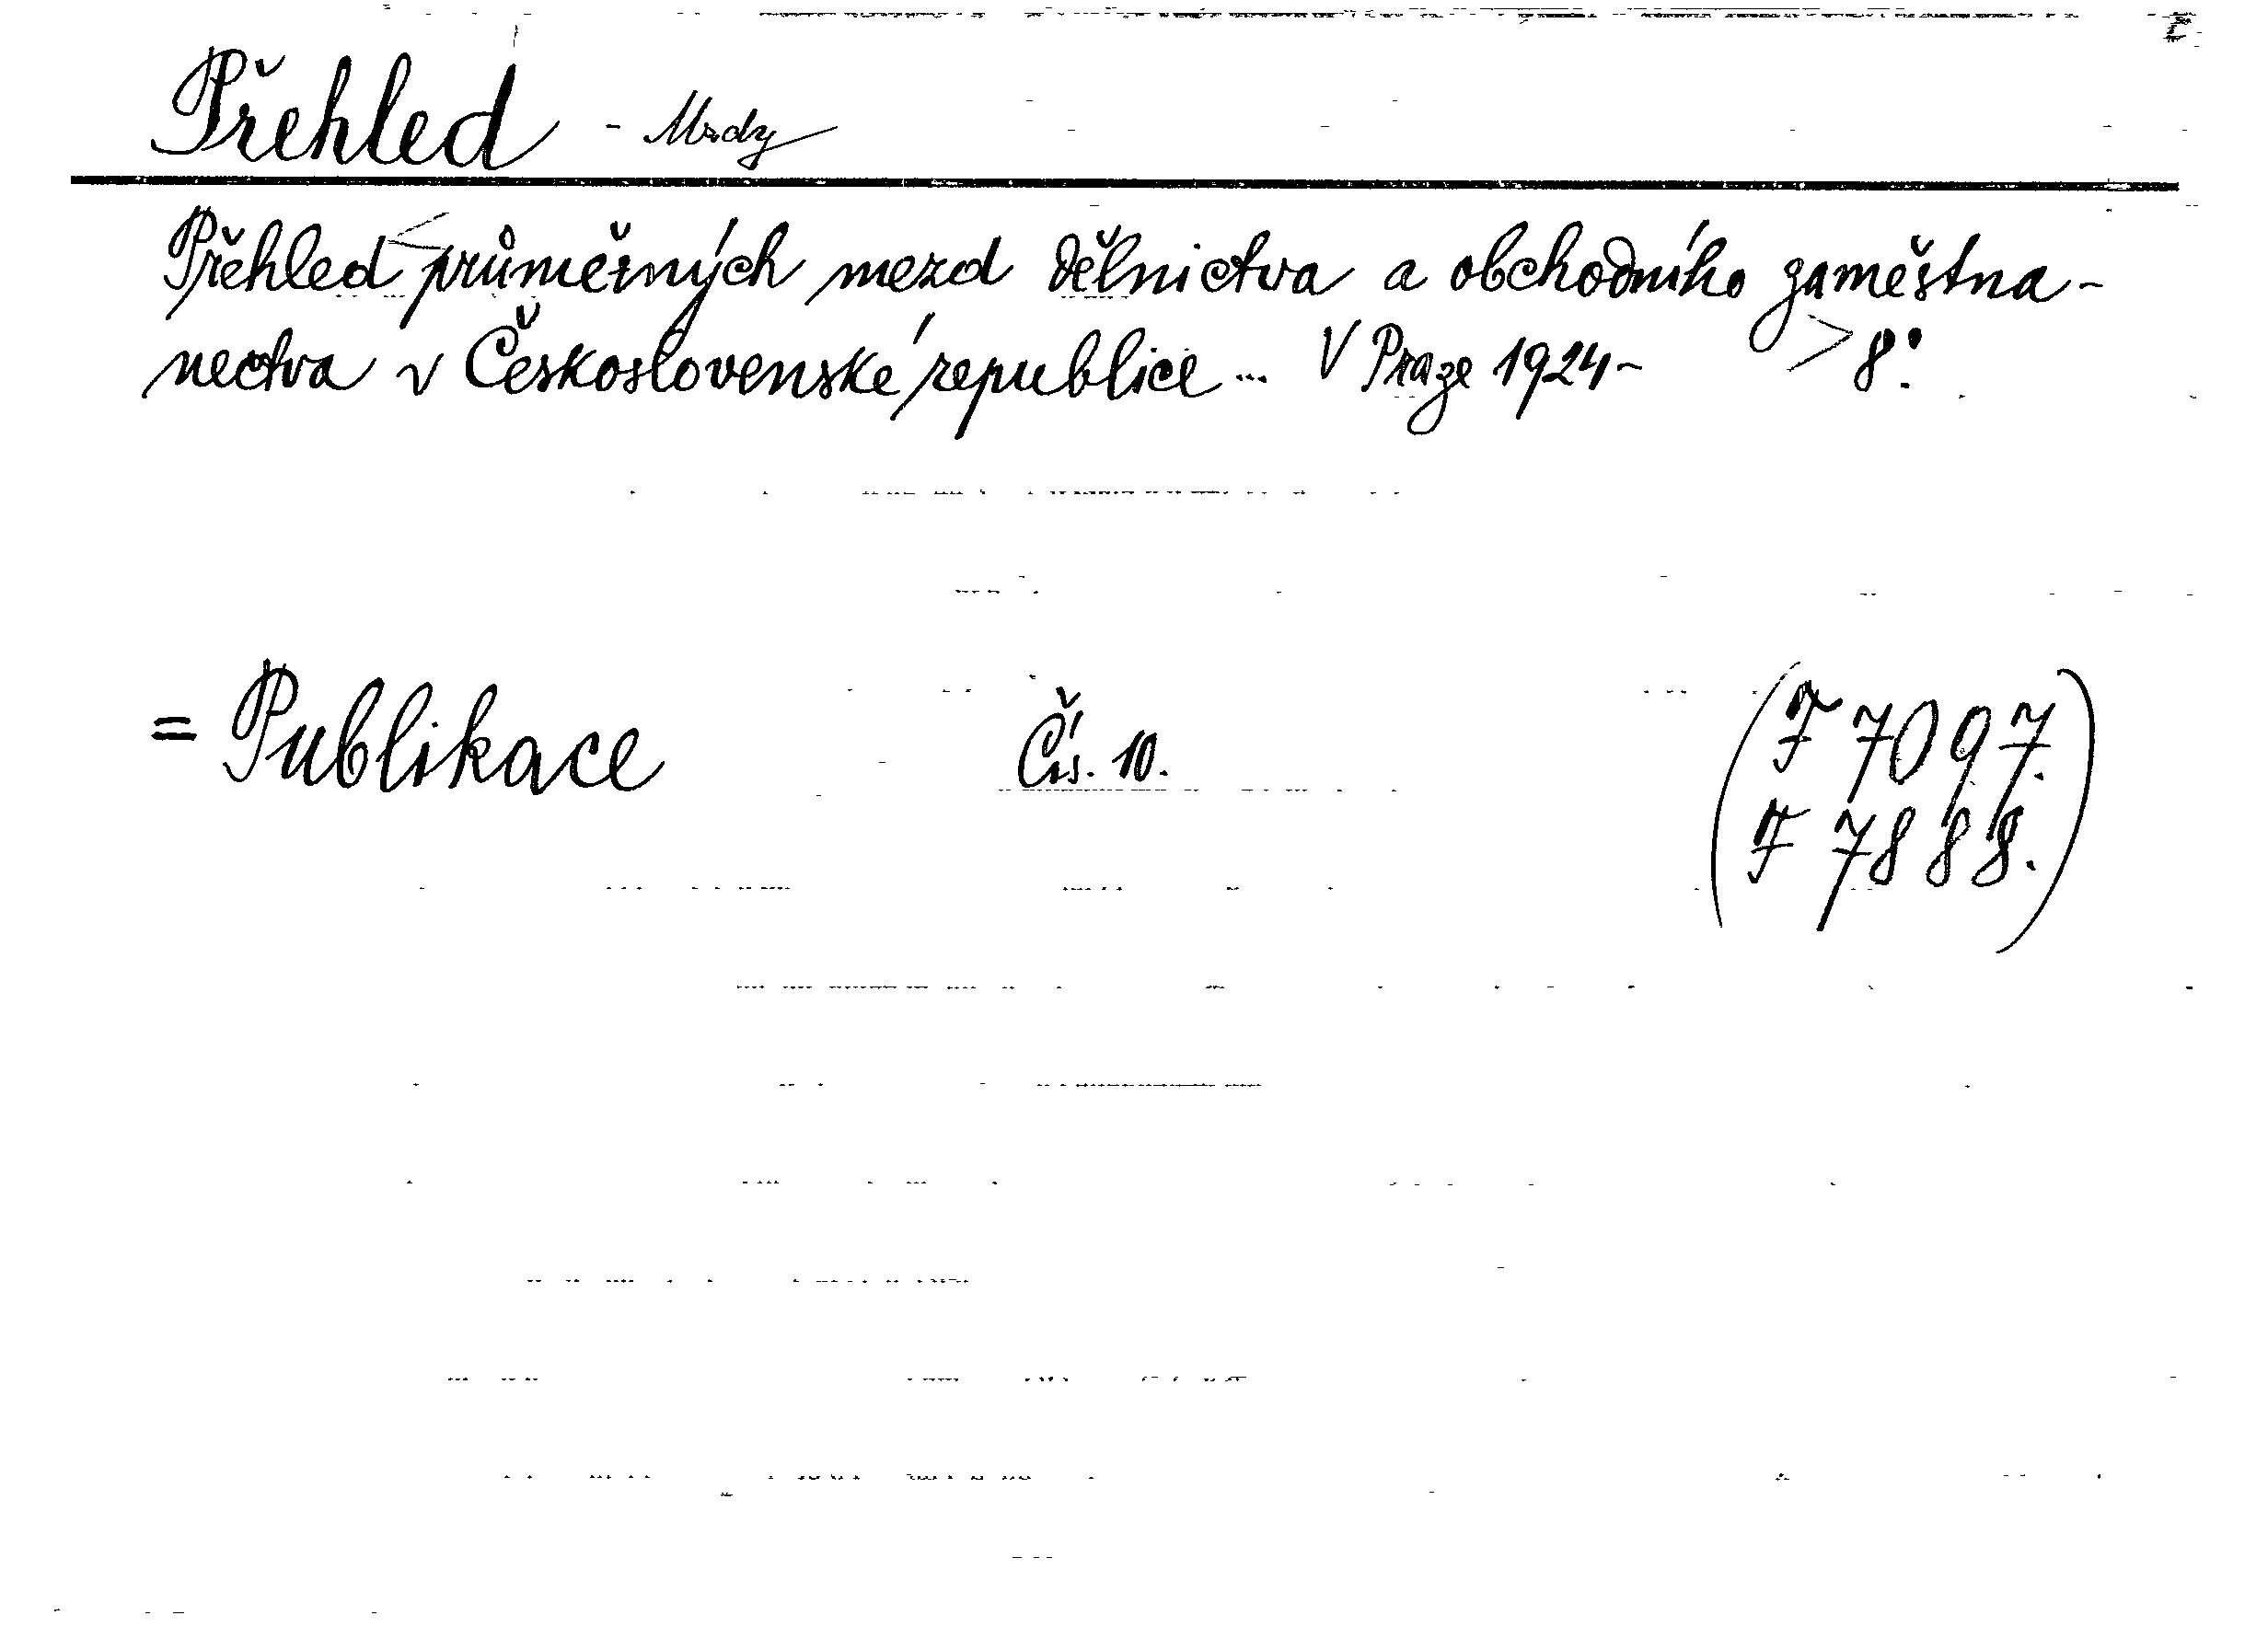 Přehled - Mzdy
Přehled průměrných mezd dělnictva a obchodního zaměstna-
nectva v Československé republice ... V Praze 1924- 8°.
= Publikace Čís. 10. (F 7097.
F 7888.)